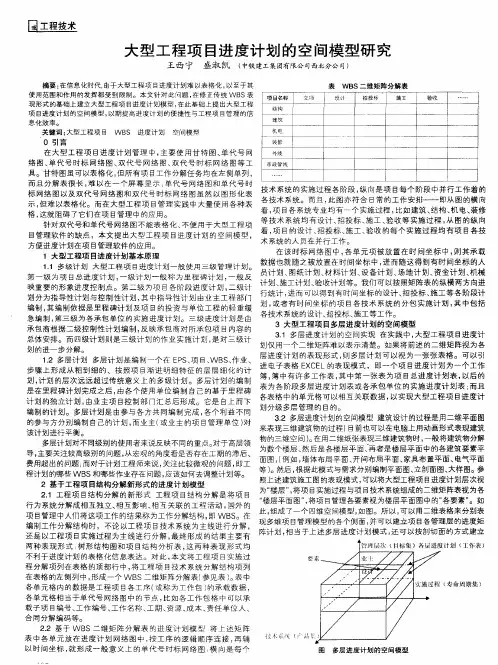 工程技术
大型工程项目进度计划的空间模型研究
王西宁 盛淑凯 (中铁建工集团有限公司西北分公司)
摘要:在信息化时代,由于大型工程项目进度计划难以表格化,以至于其
使用范围和作用的发挥都受到限制。本文针对此问题,在修正传统 WBS 表
现形式的基础上建立大型工程项目进度计划模型,在此基础上提出大型工程
项目进度计划的空间模型,以期提高进度计划的便捷性与工程项目管理的信
息化效率。
关键词:大型工程项目 WBS 进度计划 空间模型
0 引言
在大型工程项目进度计划管理中,主要使用甘特图、单代号网
络图、单代号时标网络图、双代号网络图、双代号时标网络图等工
具。甘特图虽可以表格化,但所有项目工作分解任务均在左侧单列,
而且分解表很长,难以在一个屏幕显示,单代号网络图和单代号时
标网络图以及双代号网络图和双代号时标网络图虽然以图形化表
示,但难以表格化。而在大型工程项目管理实践中大量使用各种表
格,这就阻碍了它们在项目管理中的应用。
针对双代号和单代号网络图不能表格化、不便用于大型工程项
目管理软件的缺点,本文提出大型工程项目进度计划的空间模型,
方便进度计划在项目管理软件的应用。
1 大型工程项目进度计划基本原理
1.1 多级计划 大型工程项目进度计划一般使用三级管理计划。
第一级为项目总进度计划,一级计划一般称为里程碑计划,一般反
映重要的形象进度控制点。第二级为项目各阶段进度计划,二级计
划分为指导性计划与控制性计划,其中指导性计划由业主工程部门
编制,其编制依据是里程碑计划及项目的投资与单位工程的轻重缓
急编制,第三级为各承包单位的实施进度计划。三级进度计划是由
承包商根据二级控制性计划编制,反映承包商对所承包项目内容的
总体安排。而四级计划则是三级计划的作业实施计划,是对三级计
划的进一步分解。
1.2 多层计划 多层计划是编制一个在 EPS、项目、WBS、作业、
步骤上形成从粗到细的、按照项目渐进明细特征的层层细化的计
划,计划的层次远远超过传统意义上的多级计划。多层计划的编制
是在里程碑计划完成之后,由各个使用单位编制自己的基于里程碑
计划的独立计划,由业主项目控制部门汇总后形成。它是自上而下
编制的计划。多层计划是由参与各方共同编制完成,各个利益不同
的参与方分别编制自己的计划,而业主(或业主的项目管理单位)对
该计划进行平衡。
多层计划对不同级别的使用者来说反映不同的重点。对于高层领
导,主要关注较高级别的问题,从宏观的角度看是否存在工期的滞后、
费用超出的问题,而对于计划工程师来说,关注比较微观的问题,即工
程计划的哪些 WBS 和哪些作业存在问题,应该如何去调整计划等。
2 基于工程项目结构分解新形式的进度计划模型
2.1 工程项目结构分解的新形式 工程项目结构分解是将项目
行为系统分解成相互独立、相互影响、相互关联的工程活动。国外的
项目管理中人们将这项工作的结果称为工作分解结构,即 WBS。在
编制工作分解结构时,不论以工程项目技术系统为主线进行分解,
还是以工程项目实施过程为主线进行分解,最终形成的结果主要有
两种表现形式:树形结构图和项目结构分析表,这两种表现形式均
不利于进度计划的表格化信息表达。对此,本文将工程项目实施过
程分解项列在表格的顶部行中,将工程项目技术系统分解结构项列
在表格的左侧列中,形成一个 WBS 二维矩阵分解表(参见表)。表中
各单元格内的数据是工程项目各工序(或称为工作包)的承载数据,
各单元格相当于单代号网络图中的节点,比如各工作包格中可以承
载子项目编号、工作编号、工作名称、工期、资源、成本、责任单位人、
合同分解编码等。
2.2 基于 WBS 二维矩阵分解表的进度计划模型 将上述矩阵
表中各单元放在进度计划网络图中,按工序的逻辑顺序连接,再辅
以时间坐标,就形成一般意义上的单代号时标网络图:横向是每个
表 WBS 二维矩阵分解表
项目名称 立项 设计 招投标 施工 验收 ……
结构
建筑
机电
装修
外线
市政管线
……
技术系统的实施过程各阶段,纵向是项目每个阶段中并行工作着的
各技术系统。而且,此图亦符合日常的工作安排——即从图的横向
看,项目各系统专业均有一个实施过程,比如建筑、结构、机电、装修
等技术系统均有设计、招投标、施工、验收等实施过程,从图的纵向
看,项目的设计、招投标、施工、验收的每个实施过程均有项目各技
术系统的人员在并行工作。
在该时标网络图中,各单元项被放置在时间坐标中,则其承载
数据也就随之被放置在时间坐标中,进而随之得到有时间坐标的人
员计划、图纸计划、材料计划、设备计划、场地计划、资金计划、机械
计划、施工计划、验收计划等。我们可以按照矩阵表的纵横两方向进
行统计,进而可以得到有时间坐标的设计、招投标、施工等各阶段计
划,或者有时间坐标的项目各技术系统的分包实施计划,其中包括
各技术系统的设计、招投标、施工等工作。
3 大型工程项目多层进度计划的空间模型
3.1 多层进度计划的空间实现 在实践中,大型工程项目进度计
划仅用一个二维矩阵难以表示清楚。如果将前述的二维矩阵视为各
层进度计划的表现形式,则多层计划可以视为一张张表格。可以引
进电子表格 EXCEL 的表现模式,即一个项目进度计划为一个工作
簿,簿中有许多工作表,其中第一张表为项目总进度计划表,以后的
表为各阶段多层进度计划表或各承包单位的实施进度计划表;而且
各表格中的单元格可以相互关联数据,以实现大型工程项目进度计
划分级多层管理的目的。
3.2 多层进度计划的空间模型 建筑设计的过程是用二维平面图
来表现三维建筑物的过程(目前也可以在电脑上用动画形式表现建筑
物的三维空间)。在用二维纸张表现三维建筑物时,一般将建筑物分解
为数个楼层,然后是各楼层平面,再者是楼层平面中的各建筑要素平
面图,(例如,墙体布局平面、开间布局平面、家具布置平面、电气平面
等)。然后,根据此模式与需求分别编制平面图、立剖面图、大样图。参
照上述建筑施工图的表现模式,可以将大型工程项目进度计划层次视
为“楼层”,将项目实施过程与项目技术系统组成的二维矩阵表视为各
“楼层平面”,将项目管理各要素视为楼层平面图中的“各要素”。如
此,组成了一个四维空间模型,如图。所以,可以用二维表格来分别表
现多维项目管理模型的各个侧面,并可以建立项目各管理层的进度矩
阵计划,相当于上述多层进度计划模式,还可以按剖切面的方式建立
管理层次(目标集)各层进度计划(工作表)
要素
业主
实施过程(寿命周期集)
技术系统(产品集)
图 多层进度计划的空间模型